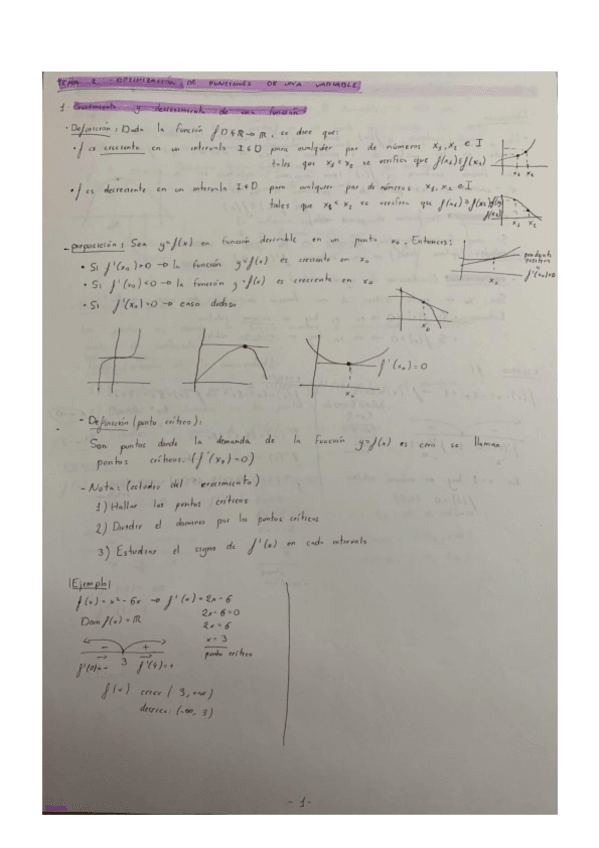 TEMA 2 - OPTIMIZACIÓN DE FUNCIONES DE UNA VARIABLE
1. Crecimiento y decrecimiento de una función
· Definición: Dada la función f: D⊆ℝ→ℝ, se dice que:
• f es creciente en un intervalo I⊂D para cualquier par de números x₁, x₂ ∈ I
tales que x₁<x₂ se verifica que f(x₁)≤f(x₂)
x₁ x₂
• f es decreciente en un intervalo I⊂D para cualquier par de números x₁, x₂ ∈ I
tales que x₁<x₂ se verifica que f(x₁)≥f(x₂)
x₁ x₂
- proposición: Sea y=f(x) en función derivable en un punto x₀. Entonces:
• Si f'(x₀)>0 → la función y=f(x) es creciente en x₀
pendiente
positiva
f'(x₀)>0
• Si f'(x₀)<0 → la función y=f(x) es creciente en x₀
• Si f'(x₀)=0 → caso dudoso
x₀
f'(x₀)=0
x₀
- Definición (punto crítico):
Son puntos donde la demanda de la función y=f(x) es cero se llaman
puntos críticos. (f'(x₀)=0)
- Nota: (estudio del crecimiento)
1) Hallar los puntos críticos
2) Dividir el dominio por los puntos críticos
3) Estudiar el signo de f'(x) en cada intervalo
Ejemplo
f(x)=x²-6x → f'(x)=2x-6
Dom f(x)=ℝ
2x-6=0
2x=6
x=3
punto crítico
- +
3
f'(0)=- f'(4)=+
f(x) crece (3,+∞)
decrece: (-∞, 3)
- 1 -